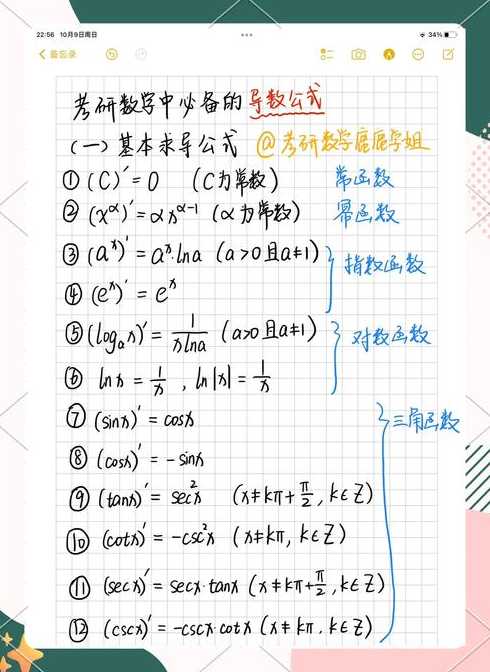 22:56 10月9日周日
34%
备忘录
考研数学中必备的导数公式
(一)基本求导公式 @考研数学鹿鹿学姐
① (C)′=0 (C为常数) 常函数
② (x^α)′=αx^(α-1) (α为常数) 幂函数
③ (a^x)′=a^x·lna (a>0且a≠1)
指数函数
④ (e^x)′=e^x
⑤ (logₐx)′=1/(xlna) (a>0且a≠1) 对数函数
⑥ lnx=1/x , ln|x|=1/x
⑦ (sinx)′=cosx 三角函数
⑧ (cosx)′=-sinx
⑨ (tanx)′=sec²x (x≠kπ+π/2, k∈Z)
⑩ (cotx)′=-csc²x (x≠kπ, k∈Z)
⑪ (secx)′=secx·tanx (x≠kπ+π/2, k∈Z)
⑫ (cscx)′=-cscx·cotx (x≠kπ, k∈Z)